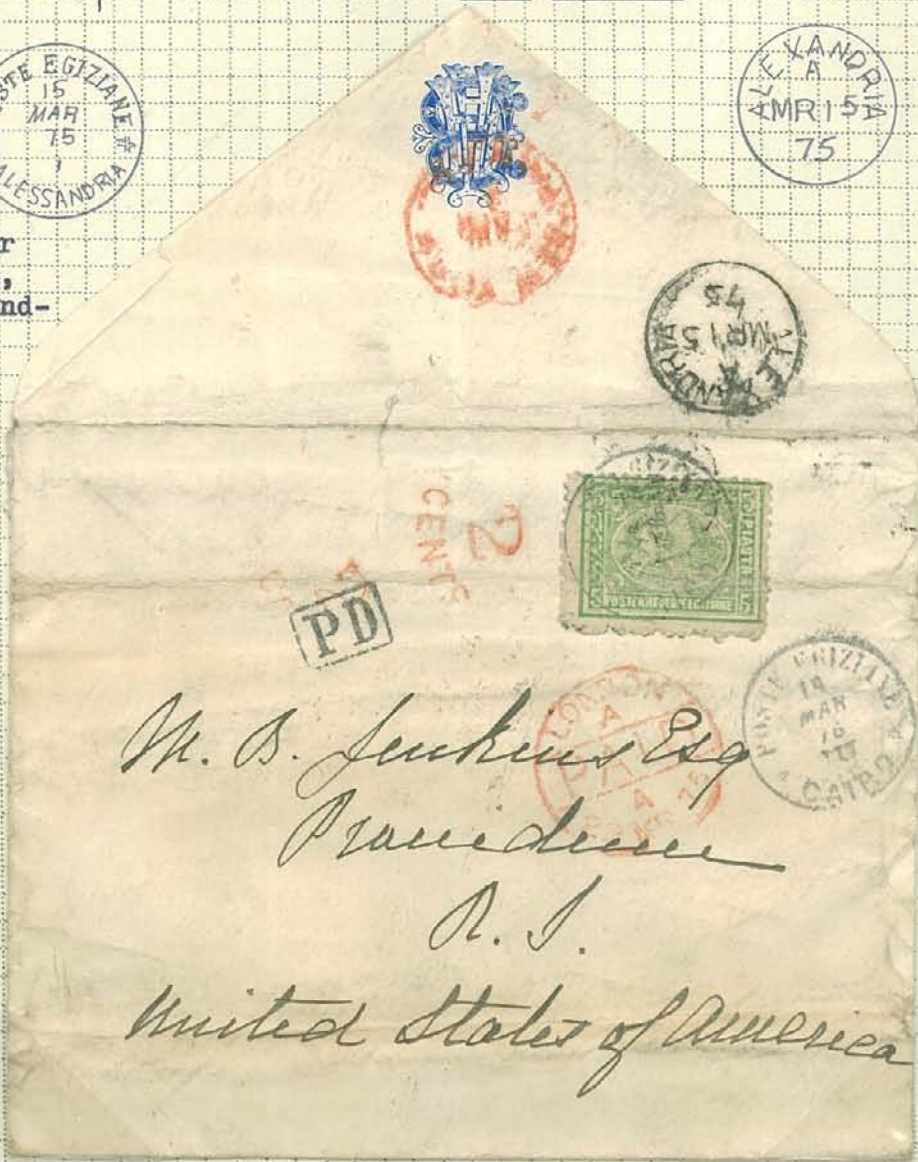 POSTE EGIZIANE
15
MAR
75
ALESSANDRIA
ALEXANDRIA
A
MR 15
75
ALEXANDRIA
A
MR 15
75
2
CENTS
PD
LONDON
A
PAID
POSTE EGIZIANE
MAR
CAIRO
M. B. Jenkins Esq
Providence
R. I.
United States of America